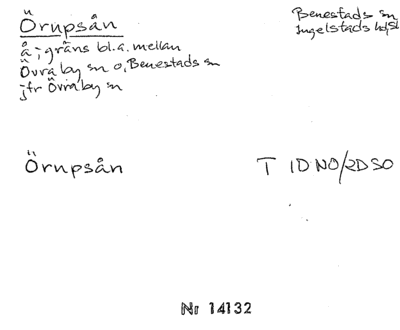 Örupsån
å; gräns bl.a. mellan
Övraby sn o. Benestads sn
jfr Övraby sn
Benestads sn
Ingelstads hd, Sk
Örupsån
T 1D NO/2D SO
Nr 14132